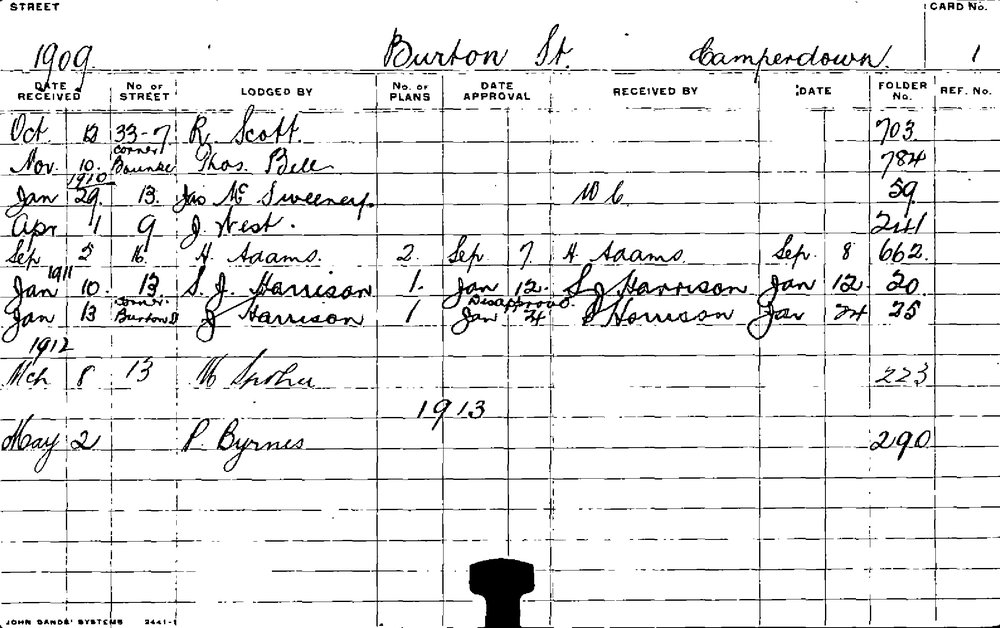 STREET CARD No.
1909 Burton St. Camperdown. 1
DATE RECEIVED No. OF STREET LODGED BY No. OF PLANS DATE APPROVAL RECEIVED BY DATE FOLDER No. REF. No.
Oct. 12 33-7 R. Scott. 703
corner
Nov. 10. Thos. Bell 784
1910
Jan 29. 13. Jas Mc Sweeney. W C. 59
Apr 1 9 J. West. 241
Sep 5 16. H. Adams. 2. Sep. 7. H Adams. Sep. 8 662.
1911
Jan 10. 13 S. J. Harrison 1. Jan 12. S J Harrison Jan 12. 20
corner. Disapproved
Jan 13 Burton J Harrison 1 Jan 24 Harrison Jan 24 25
1912
Mch 8 13 M 223
1913
May 2 P. Byrnes 290
JOHN SANDS' SYSTEMS 2441-1